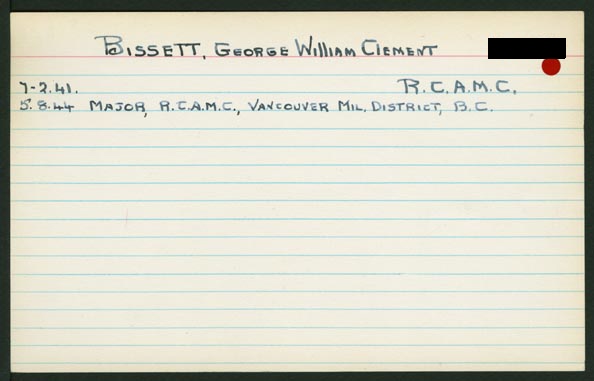 BISSETT, GEORGE WILLIAM CLEMENT
7-2.41. R.C.A.M.C.
5.8.44 MAJOR, R.C.A.M.C., VANCOUVER MIL. DISTRICT, B.C.